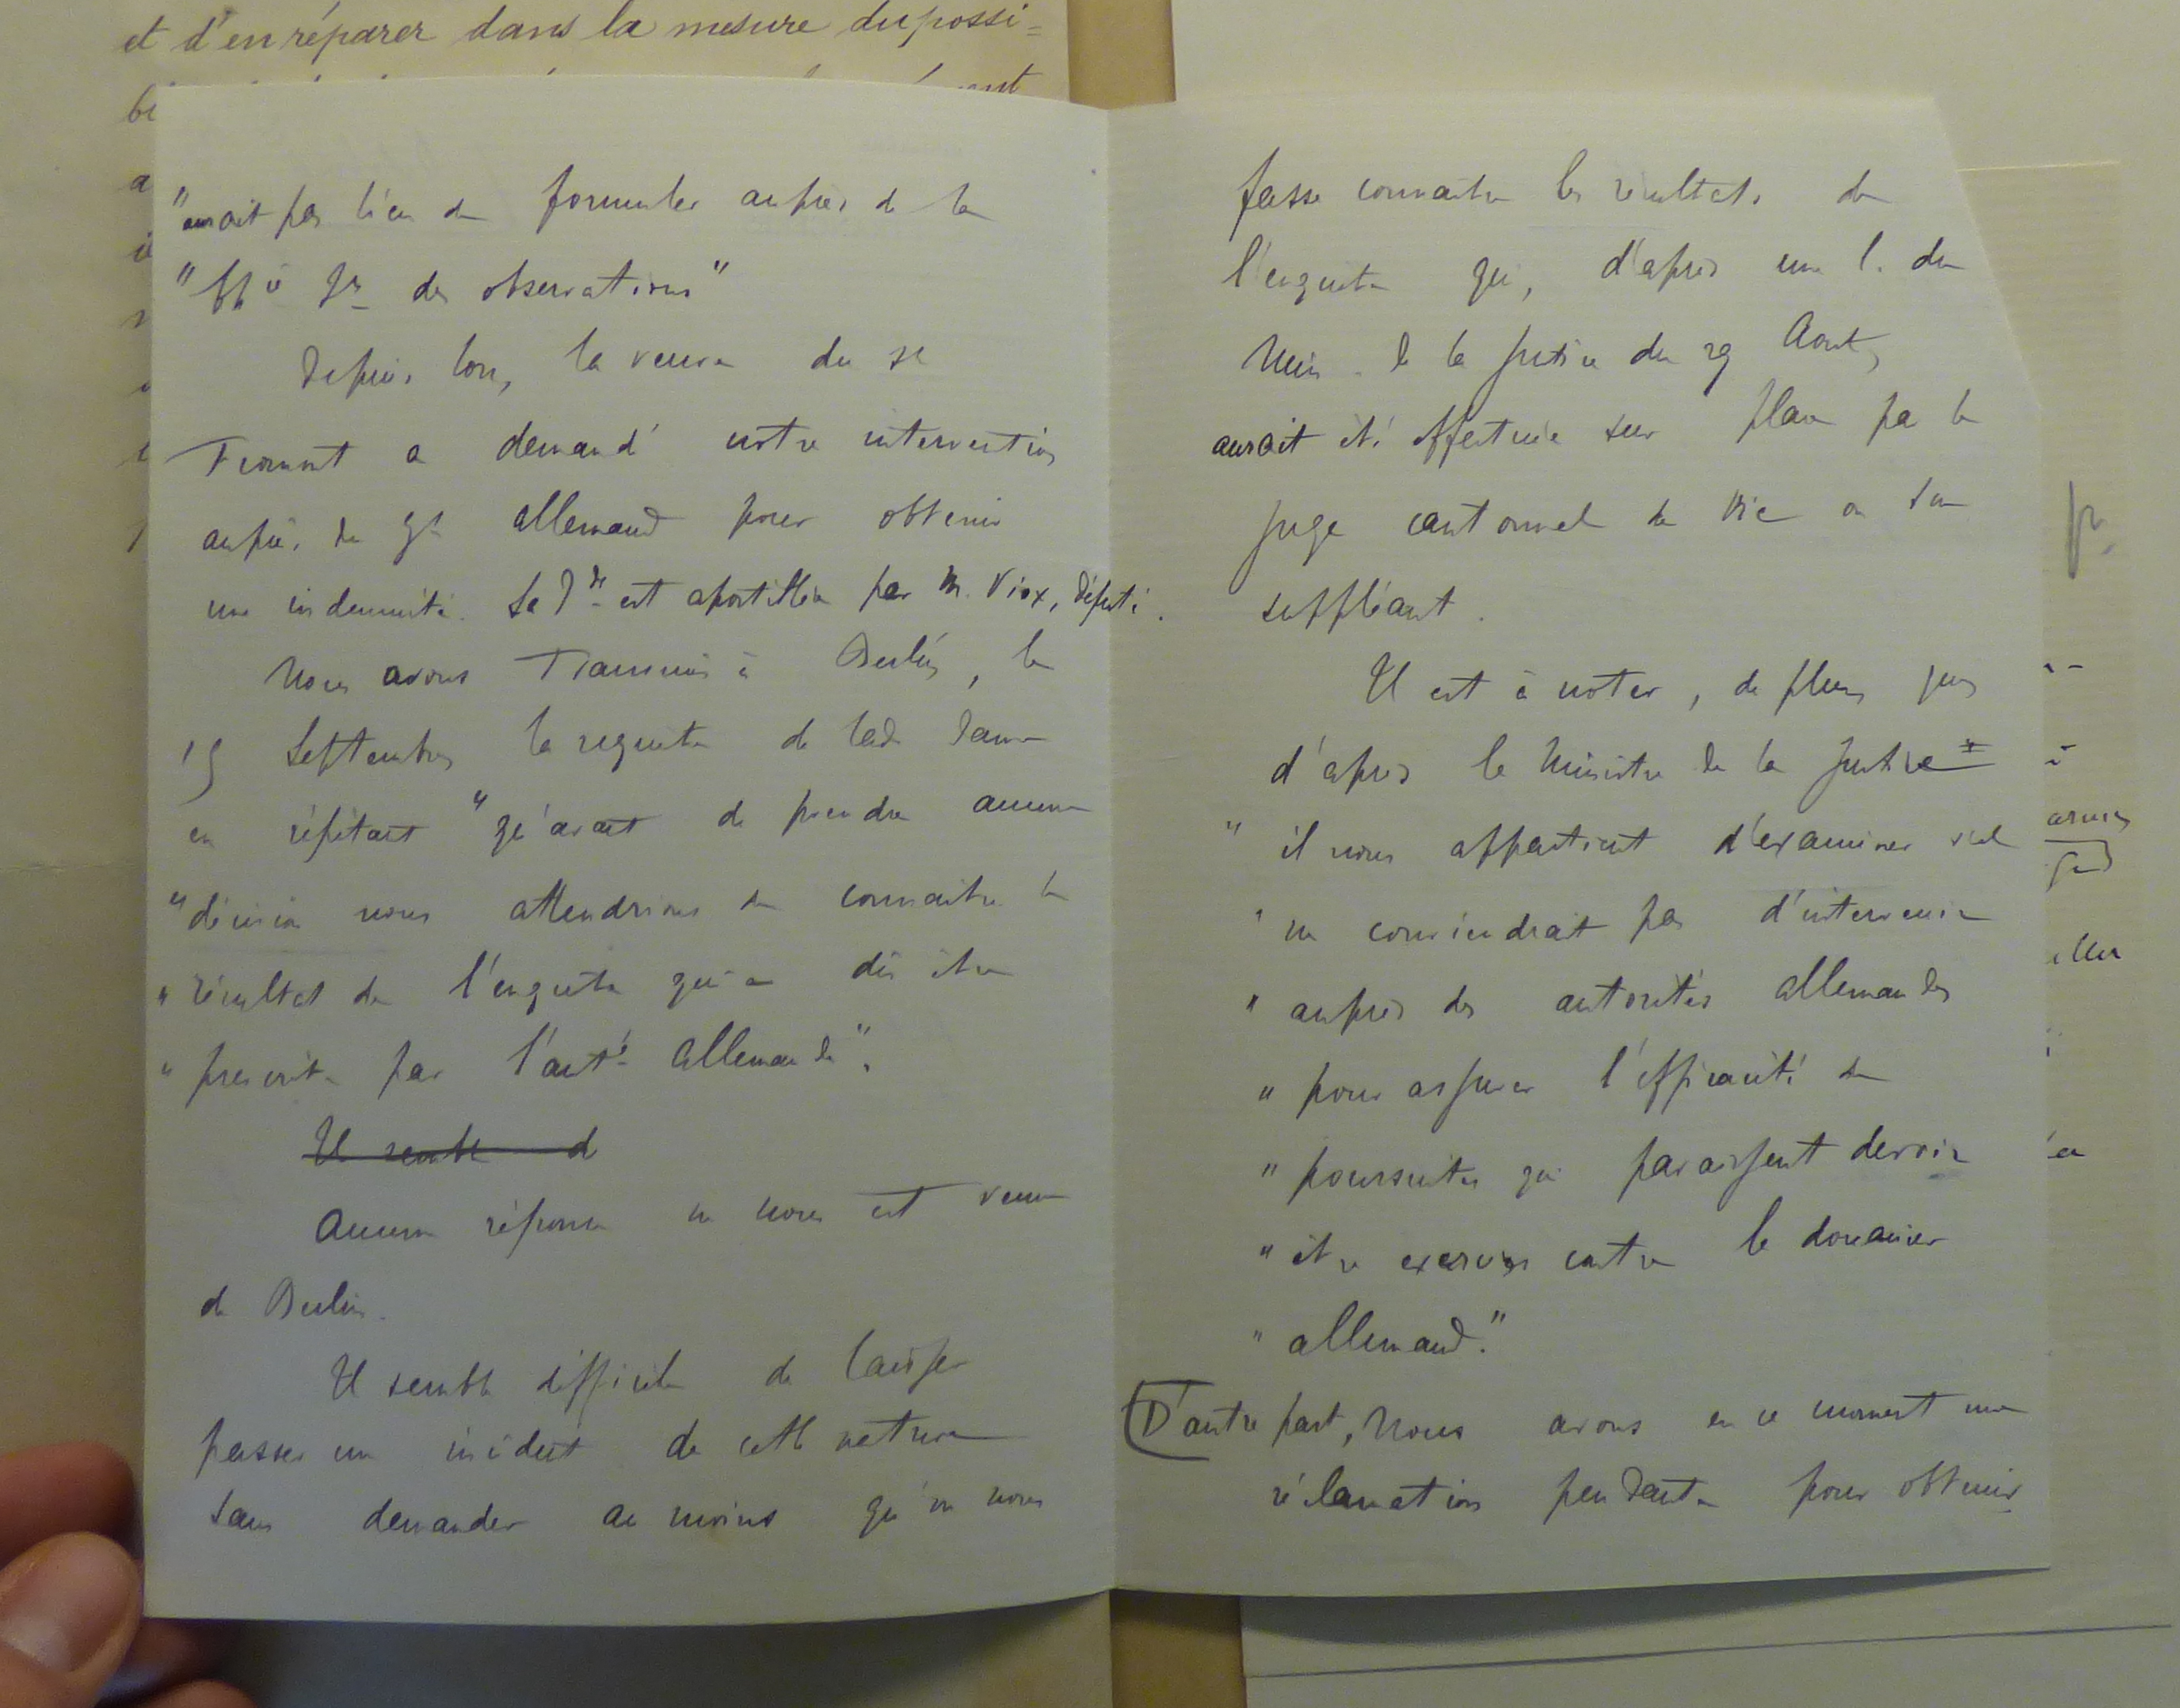 et d'en réparer dans la mesure du possi=
"aurait pas lieu de formuler auprès de la
des observations"
Depuis lors, la veuve du sr
a demandé notre intervention
auprès du Gt allemand pour obtenir
une indemnité. Sa Dde est apostillée par M. Viox, député.
Nous avons transmis à Berlin, le
Septembre, la requête de lad. dame
en répétant "qu'avant de prendre aucune
"décision nous attendrions de connaître le
"résultat de l'enquête qui a dû être
"prescrite par l'auté allemande".
Il semble d
Aucune réponse ne nous est venue
de Berlin.
Il semble difficile de laisser
passer un incident de cette nature
sans demander au moins qu'on nous
fasse connaître les résultats de
l'enquête qui, d'après une l. du
Min. de la Justice du 29 Août,
aurait été effectuée sur place par le
juge cantonnel de Vic ou son
suppléant.
Il est à noter, de plus, que,
d'après le Ministre de la Justice
"il nous appartient d'examiner s'il
"ne conviendrait pas d'intervenir
"auprès des autorités allemandes
"pour assurer l'efficacité des
"poursuites qui paraissent devoir
"être exercées contre le douanier
"allemand."
D'autre part, Nous avons en ce moment une
réclamation pendante pour obtenir